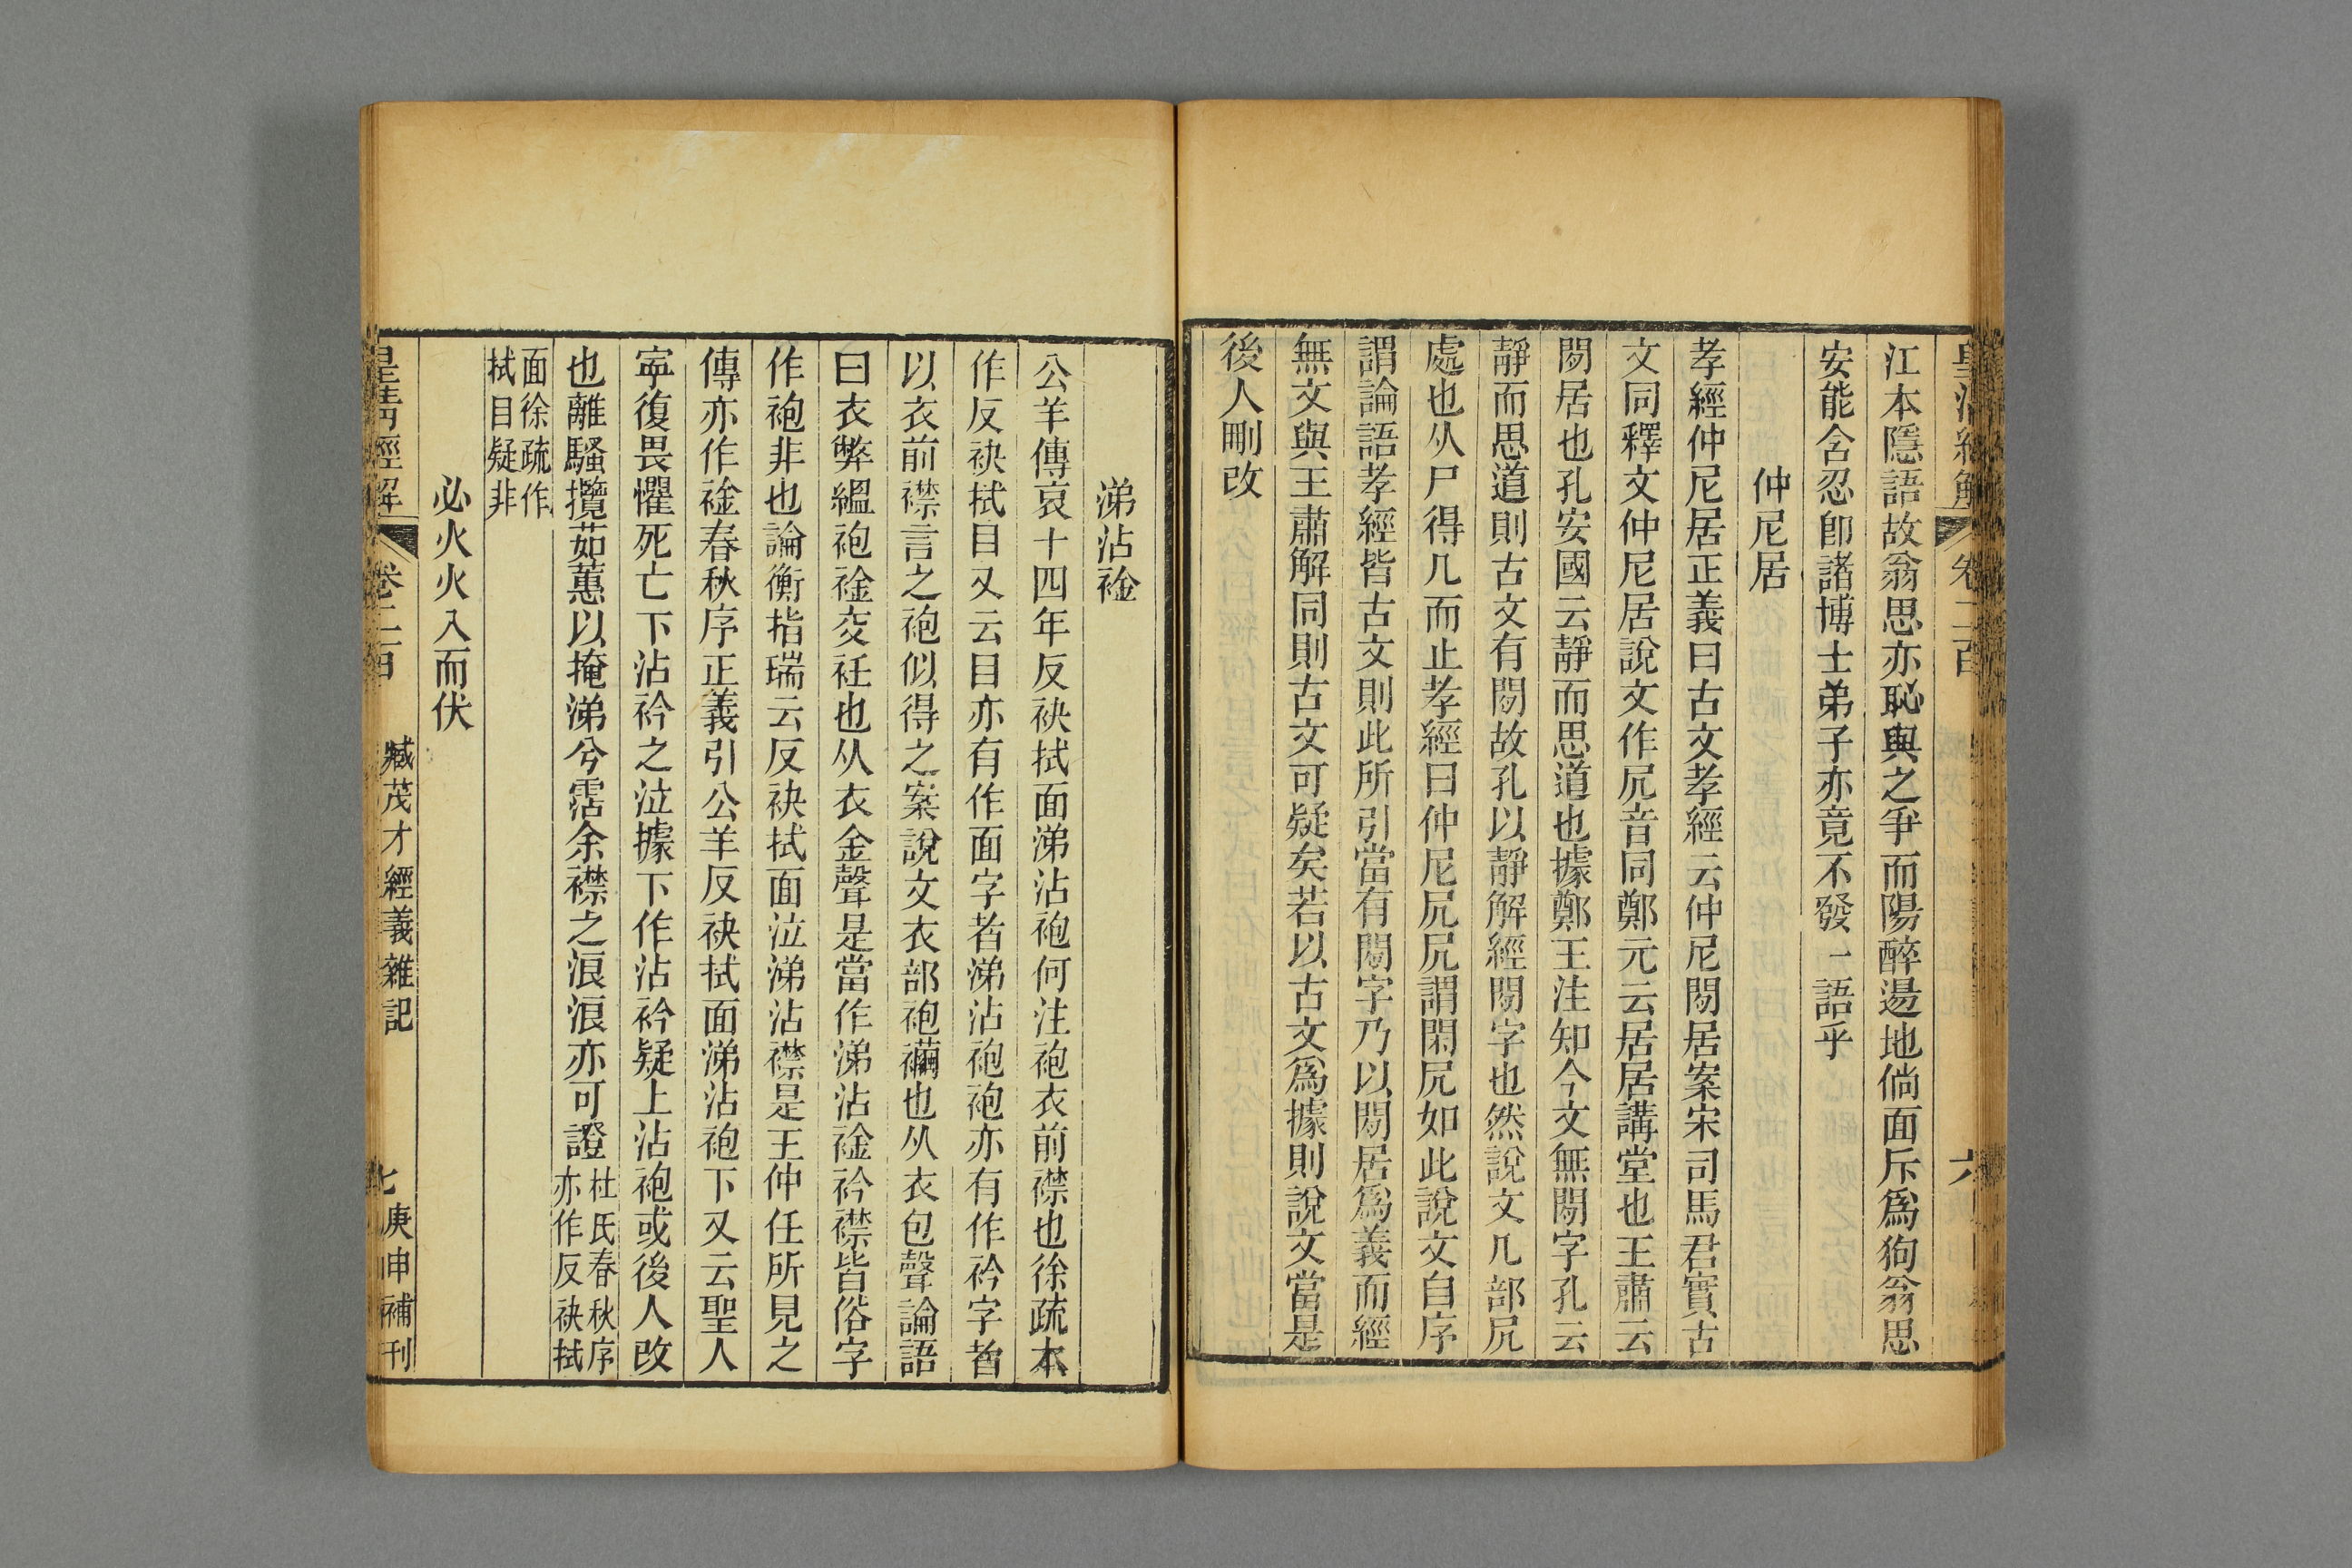 皇清經解 卷二百 六
江本隱語故翁思亦恥與之爭而陽醉逿地倘面斥爲狗翁思
安能含忍卽諸博士弟子亦竟不發一語乎
仲尼居
孝經仲尼居正義曰古文孝經云仲尼閒居案宋司馬君實古
文同釋文仲尼居說文作凥音同鄭元云居居講堂也王肅云
閒居也孔安國云靜而思道也據鄭王注知今文無閒字孔云
靜而思道則古文有閒故孔以靜解經閒字也然說文几部凥
處也从尸得几而止孝經曰仲尼凥凥謂閑凥如此說文自序
謂論語孝經皆古文則此所引當有閒字乃以閒居爲義而經
無文與王肅解同則古文可疑矣若以古文爲據則說文當是
後人刪改
涕沾䘳
公羊傳哀十四年反袂拭面涕沾袍何注袍衣前襟也徐疏本
作反袂拭目又云目亦有作面字者涕沾袍袍亦有作衿字者
以衣前襟言之袍似得之案說文衣部袍襺也从衣包聲論語
曰衣弊縕袍䘳交衽也从衣金聲是當作涕沾䘳衿襟皆俗字
作袍非也論衡指瑞云反袂拭面泣涕沾襟是王仲任所見之
傳亦作䘳春秋序正義引公羊反袂拭面涕沾袍下又云聖人
寧復畏懼死亡下沾衿之泣據下作沾衿疑上沾袍或後人改
也離騷攬茹蕙以掩涕兮霑余襟之浪浪亦可證杜氏春秋序
亦作反袂拭
面徐疏作
拭目疑非
必火火入而伏
皇清經解 卷二百 臧茂才經義雜記 七 庚申補刊